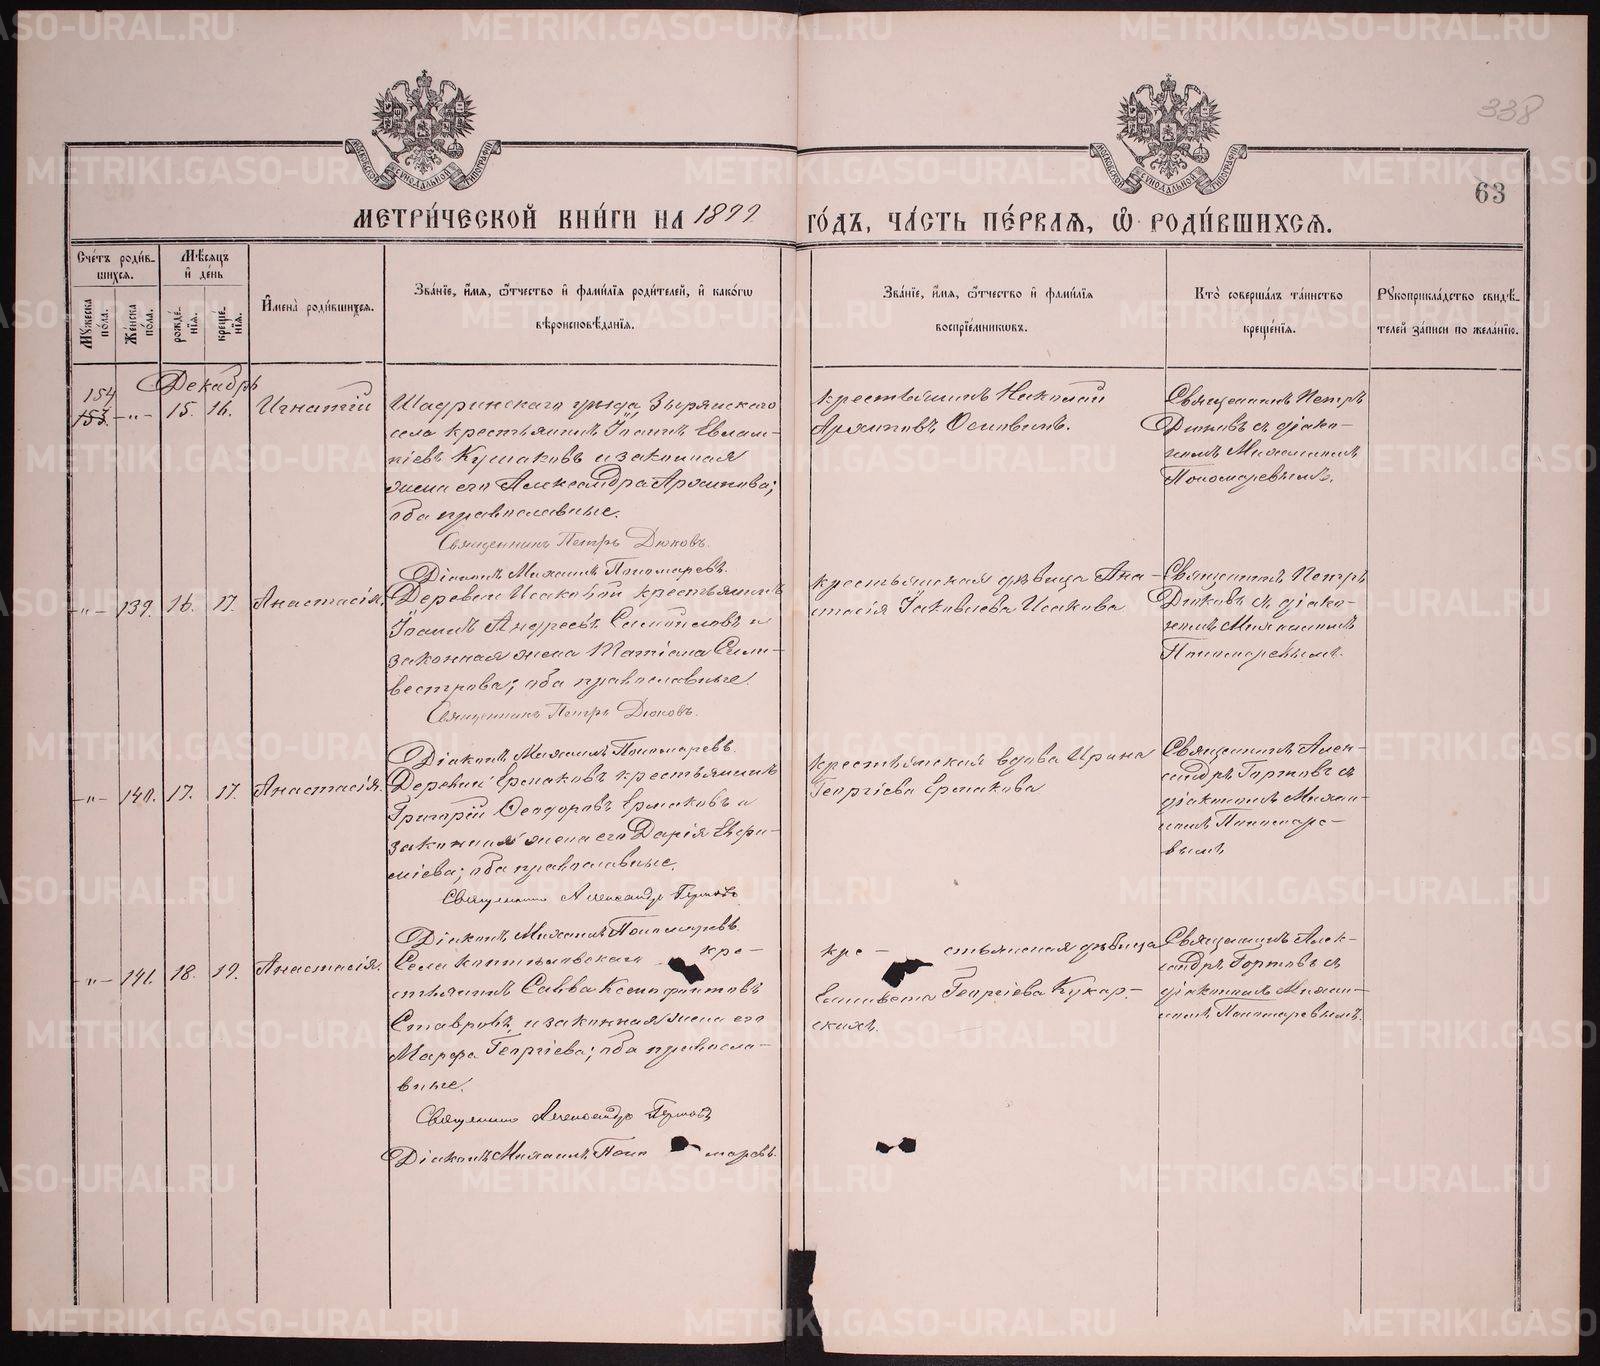 338
63
МЕТРИ́ЧЕСКОЙ КНИ́ГИ НА 1899 ГО́ДЪ, ЧА́СТЬ ПЕ́РВАѦ, Ѡ РОДИ́ВШИХСѦ.
Сче́тъ роди́в-
шихсѧ.
Мꙋжеска по́ла.
Же́нска по́ла.
Мѣ́сѧцъ и҆ де́нь
рожде́нїѧ.
креще́нїѧ.
И҆мена̀ роди́вшихсѧ.
Зва́нїе, и҆́мѧ, ѻ҆́тчество и҆ фами́лїѧ роди́телей, и҆ како́гѡ
вѣроисповѣ́данїѧ.
Зва́нїе, и҆́мѧ, ѻ҆́тчество и҆ фами́лїѧ
воспрїе́мникѡвъ.
Кто̀ соверша́лъ та́инство
креще́нїѧ.
Рꙋкоприкла́дство свидѣ́-
телей за́писи по жела́нїю.
Декабрь
154
153. -"- 15. 16. Игнатій
Шадринскаго уѣзда, Зырянскаго
села крестьянинъ Іоаннъ Евлам-
піевъ Кушаковъ и законная
жена его Александра Архипова;
оба православные.
Священникъ Петръ Дюковъ.
Діаконъ Михаилъ Пономаревъ.
крестьянинъ Николай
Архиповъ Осиповыхъ.
Священникъ Петръ
Дюковъ съ діако-
номъ Михаиломъ
Пономаревымъ.
-"- 139. 16. 17. Анастасія.
Деревни Исаковой крестьянинъ
Іоаннъ Андреевъ Самойловъ и
законная жена Татіана Сили-
вестрова; оба православные.
Священникъ Петръ Дюковъ.
Діаконъ Михаилъ Пономаревъ.
крестьянская дѣвица Ана-
стасія Іаковлева Исакова
Священникъ Петръ
Дюковъ съ діако-
номъ Михаиломъ
Пономаревымъ.
-"- 140. 17. 17. Анастасія.
Деревни Ермаковъ крестьянинъ
Григорій Ѳеодоровъ Ермаковъ и
законная жена его Дарія Евфи-
міева; оба православные.
Священникъ Александръ
Діаконъ Михаилъ Пономаревъ.
крестьянская вдова Ирина
Георгіева Ермакова
Священникъ Алек-
сандръ съ
діакономъ Михаи-
ломъ Пономаре-
вымъ
-"- 141. 18. 19. Анастасія.
Села кре-
стьянинъ Савва Ксенофонтовъ
Ставровъ и законная жена его
Марфа Георгіева; оба правосла-
вные.
Священникъ Александръ
Діаконъ Михаилъ Поно маревъ.
кре- стьянская дѣвица
Елисавета Георгіева Кукар-
скихъ.
Священникъ Алек-
сандръ съ
діакономъ Михаи-
ломъ Пономаревымъ.
METRIKI.GASO-URAL.RU